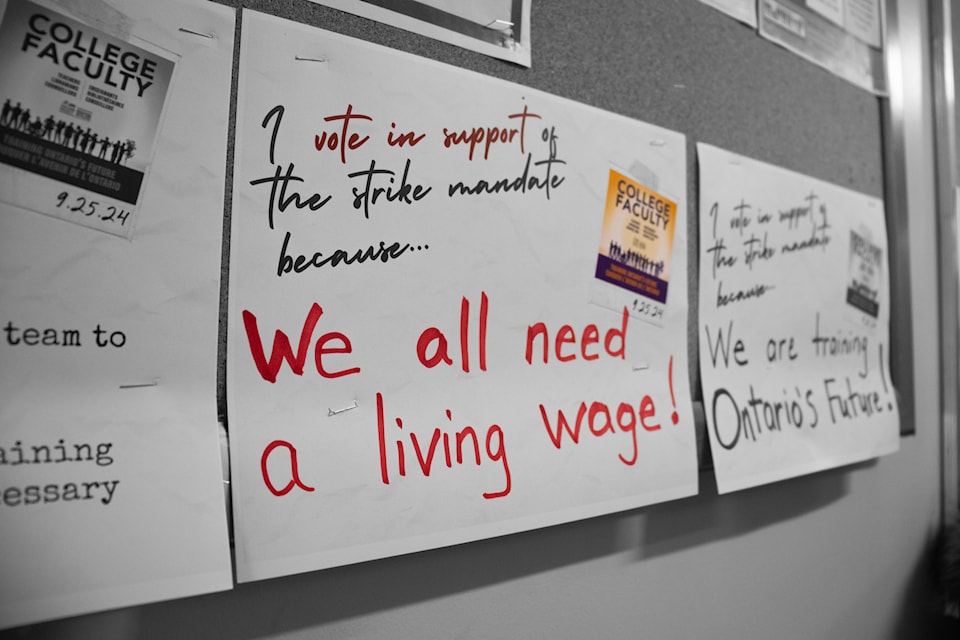 COLLEGE
FACULTY
TEACHERS
LIBRARIANS
COUNSELLORS
TRAINING ONTARIO'S FUTURE
FORMER L'AVENIR DE L'ONTARIO
9.25.24
team to
aining
cessary
I vote in support of
the strike mandate
because...
COLLEGE
FACULTY
9.25.24
We all need
a living wage!
I vote in support of
the strike mandate
because...
We are training
Ontario's Future!